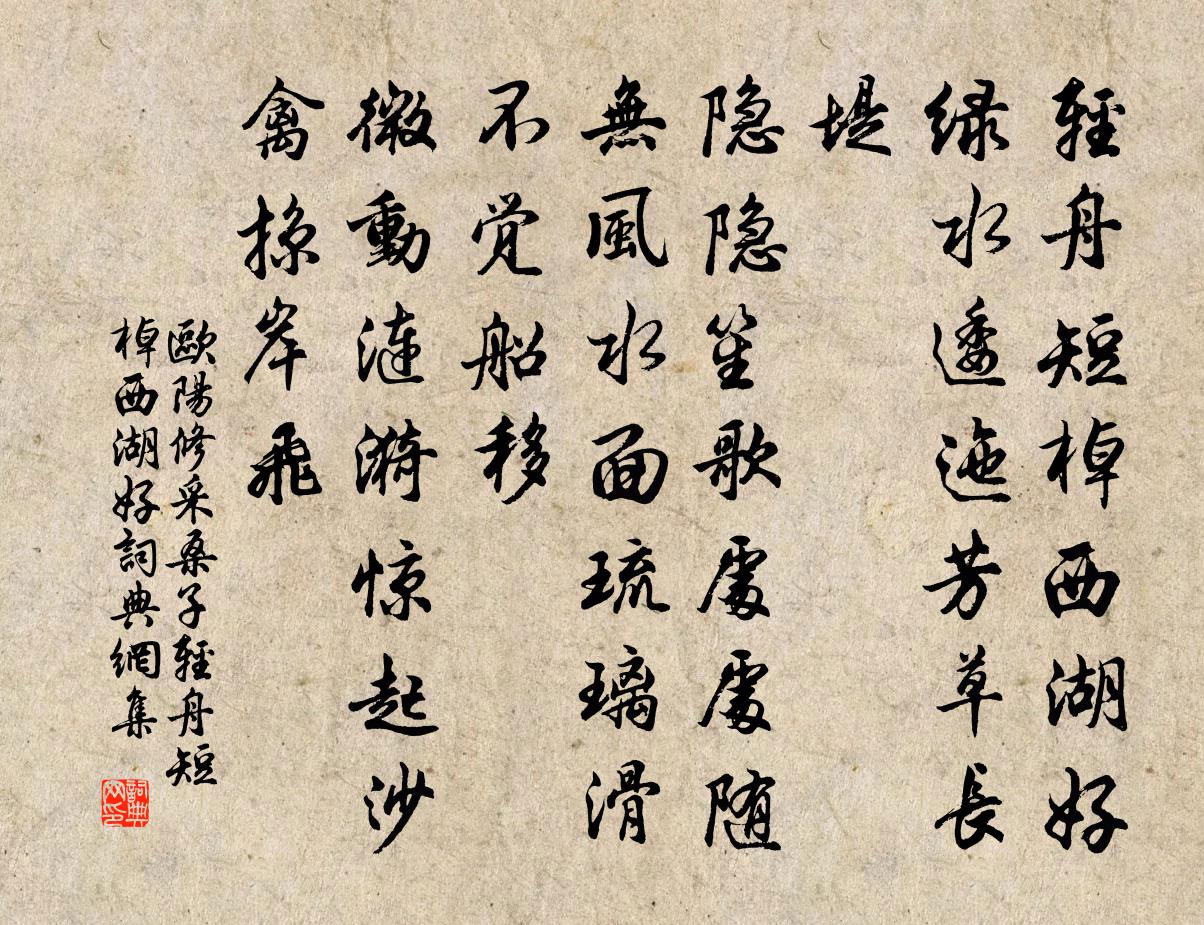 輕舟短棹西湖好
緑水逶迤芳草長
堤
隐隐笙歌處處随
無風水面琉璃滑
不觉船移
微動漣漪惊起沙
禽掠岸飛
歐陽修采桑子輕舟短
棹西湖好詞典網集
詞典
网印